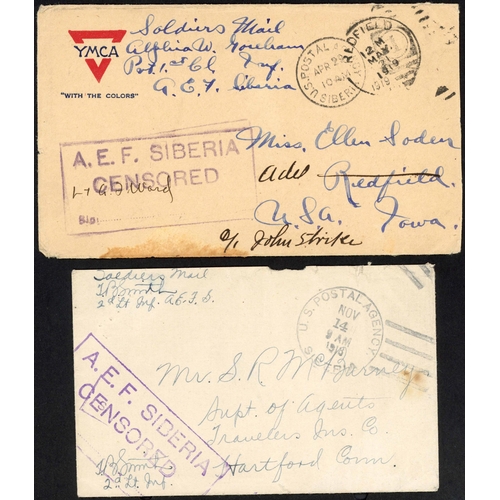 Soldiers Mail
YMCA
"WITH THE COLORS"
Pvt. 1st Cl. Inf.
A.E.F. Siberia
U.S. POSTAL A
APR 29
10 AM
SIBERIA
REDFIELD
12 M
MAY
21
1919
A.E.F. SIBERIA
CENSORED
Lt A F Word
Miss. Ellen Soder
Adel Redfield.
U.S.a. Iowa.
c/o John Striker
Soldiers Mail
2d Lt Inf. A.E.F.S.
U.S. POSTAL AGENCY
NOV
14
9 AM
1919
A.E.F. SIBERIA
CENSORED
Mr. S. R. McBurney
Supt. of Agents
Travelers Ins. Co.
Hartford Conn.
2d Lt Inf.